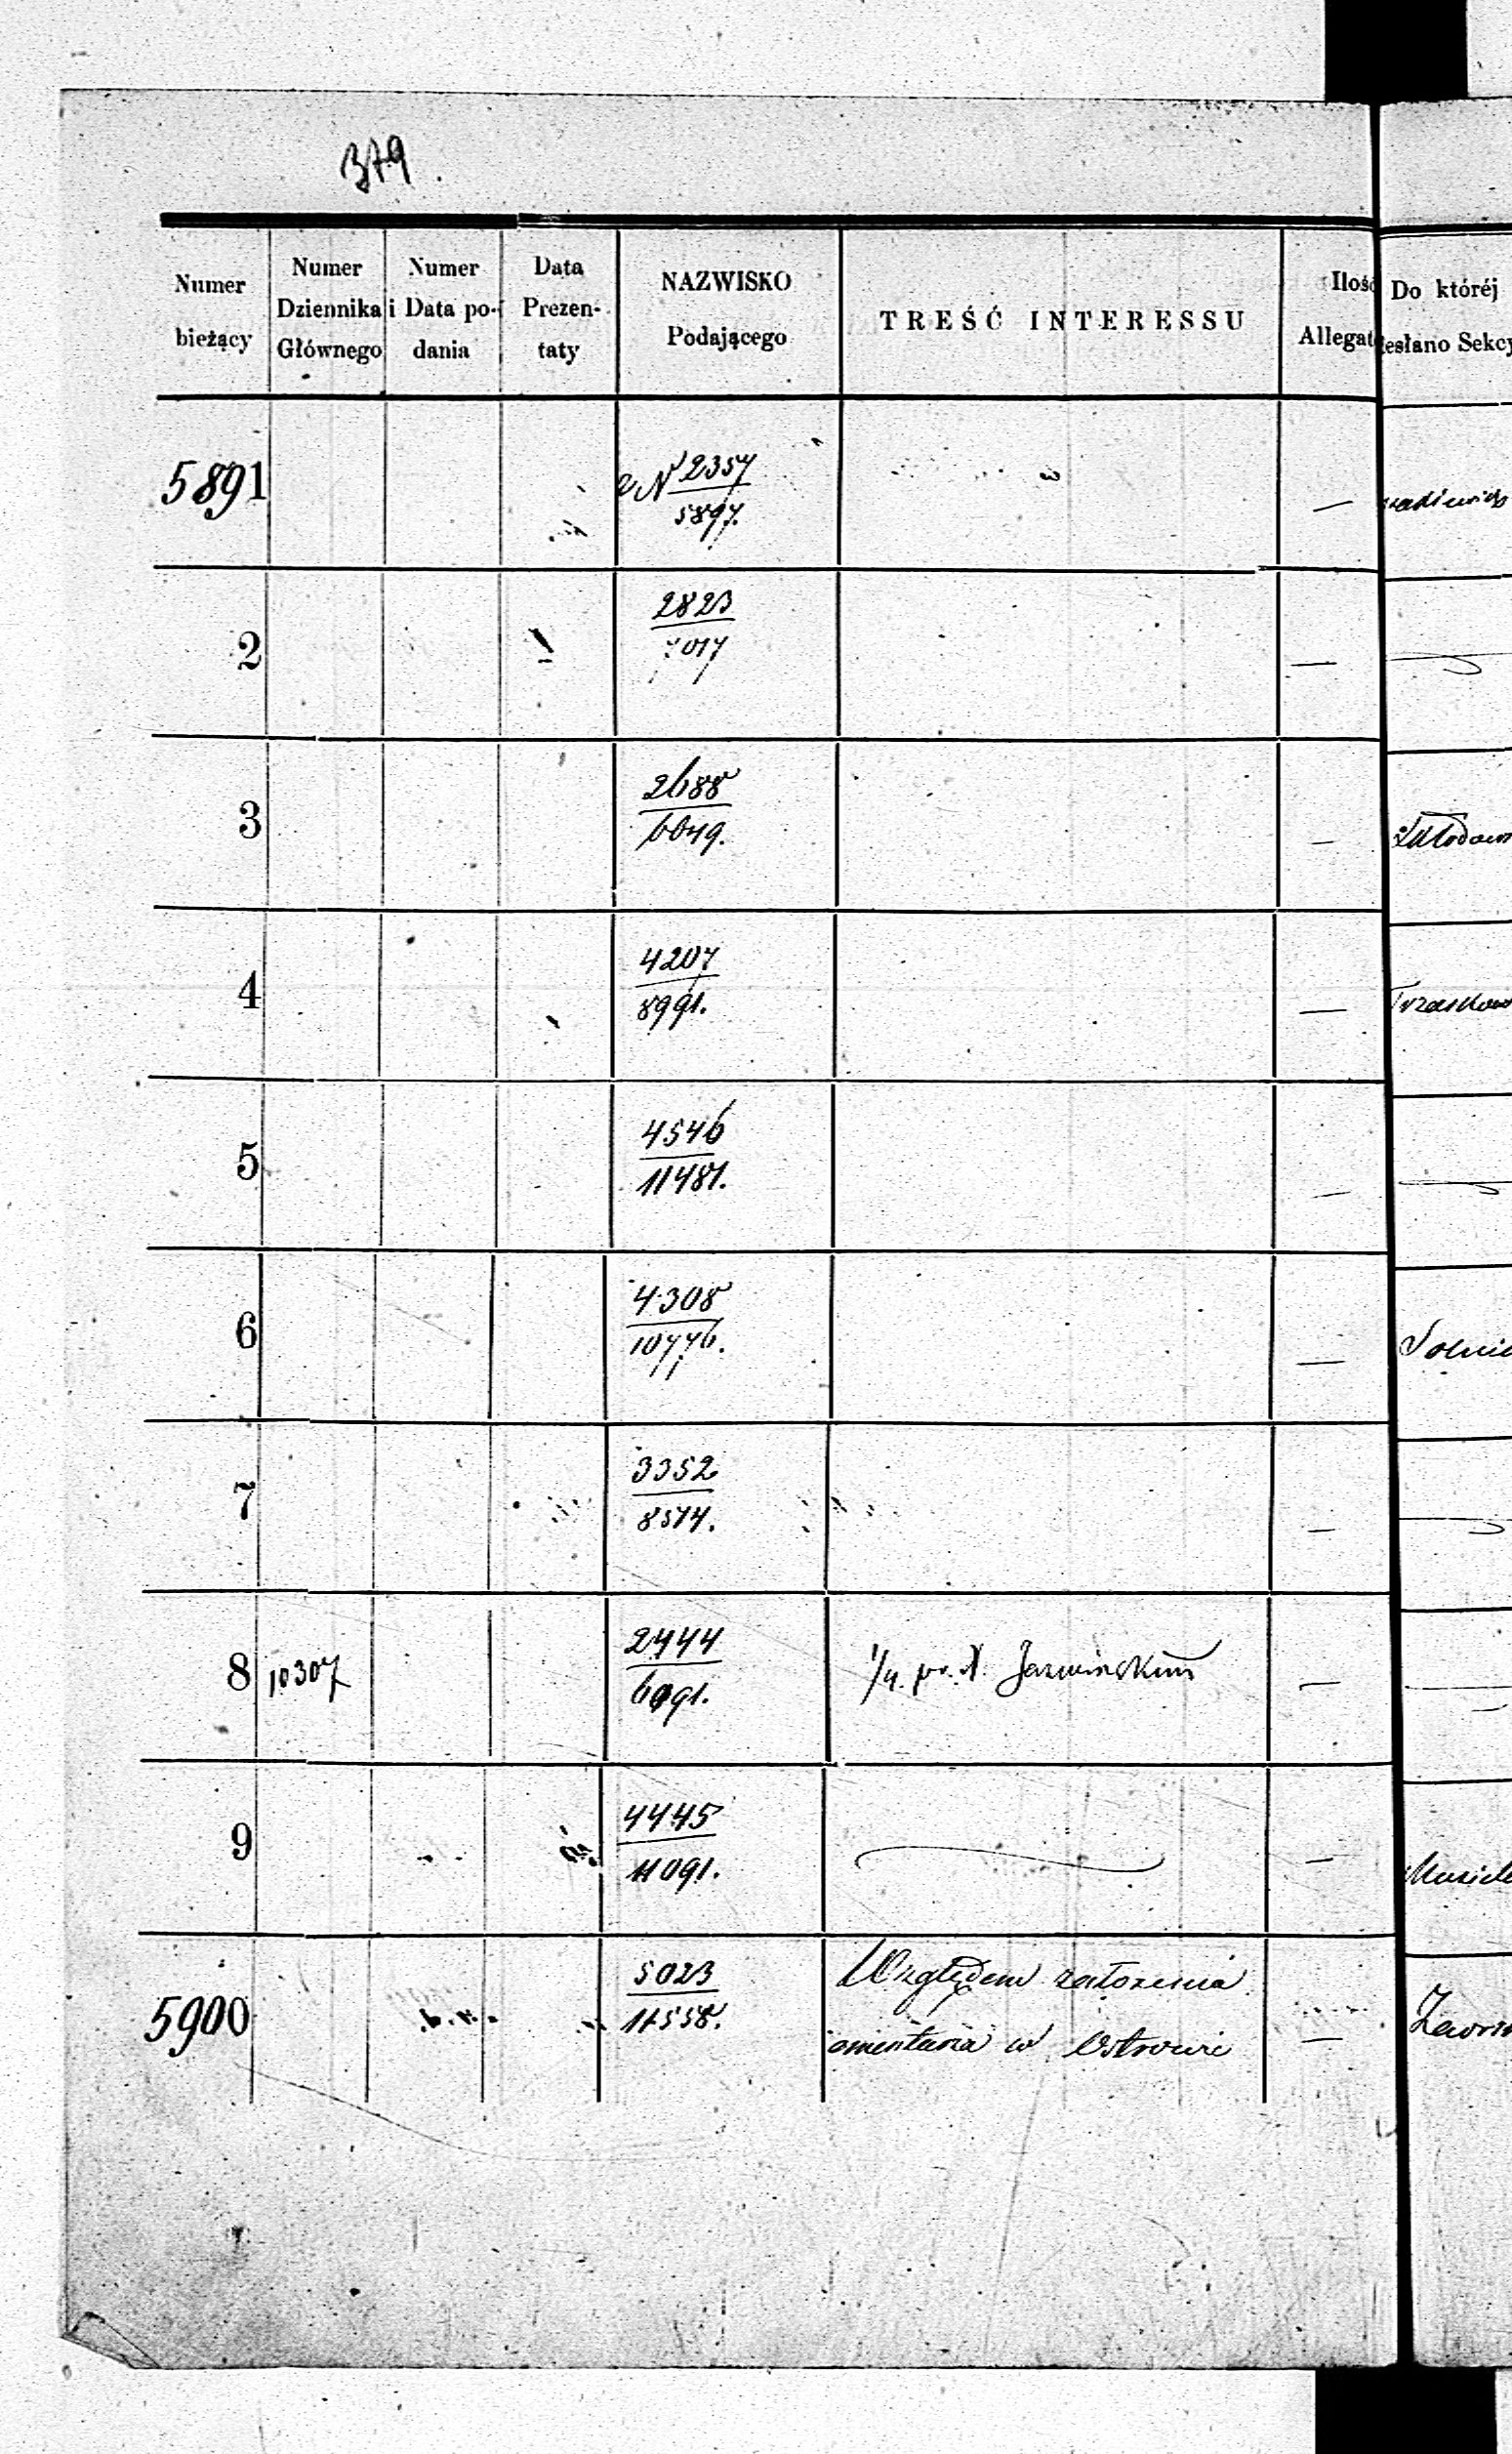 379.
Numer bieżący
Numer Dziennika Głównego
Numer i Data podania
Data Prezentaty
NAZWISKO Podającego
TREŚĆ INTERESSU
Ilość
Do któréj
Sekcy
5891 2357 —
5897.
2 2823 —
7017
3 2688 —
6049.
4 4207 —
8991.
5 4546 —
11481.
6 4308 —
10776.
7 3352 —
8574.
8 10307 2444 1/4. Jarmińskim —
6091.
9 4445 —
11091.
5900 5023 Względem założenia —
11558. cmentarza w Ostrowie